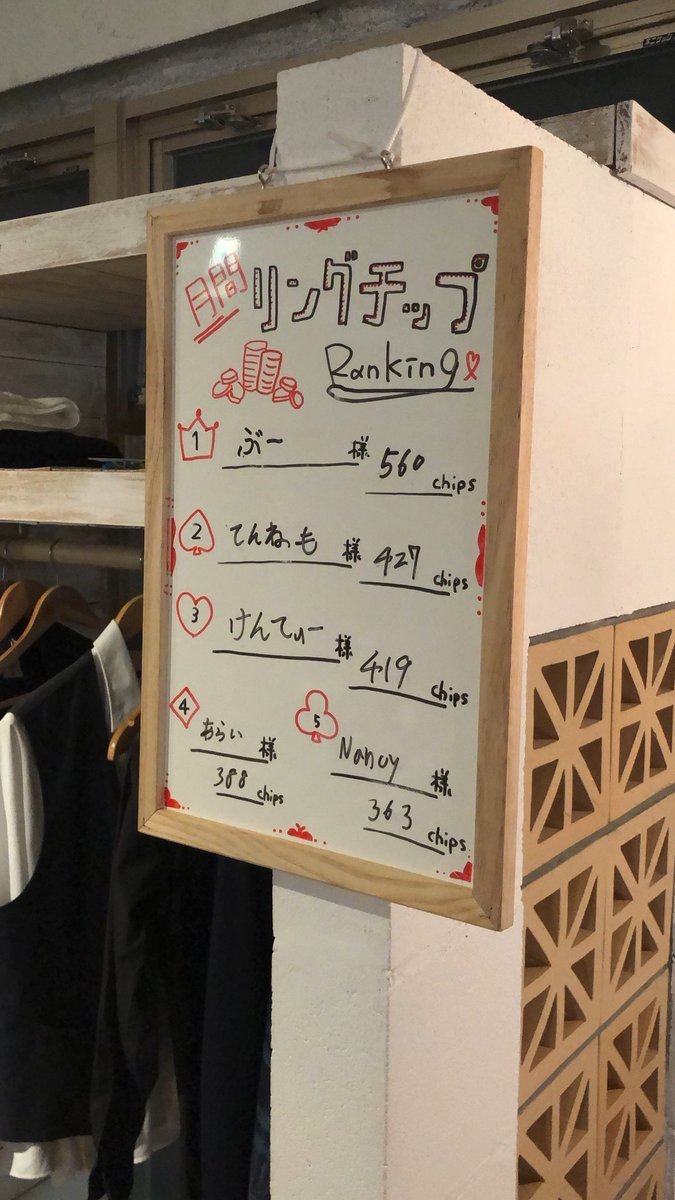 月間 リングチップ
Ranking
1 ぶー 様 560 chips
2 てんねっも 様 427 chips
3 けんてぃー 様 419 chips
4 あらい 様
388 chips
5 Nancy 様
363 chips